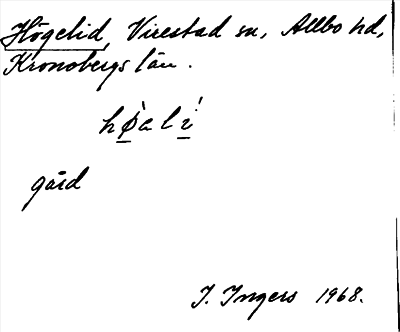 Högelid, Virestad sn, Allbo hd,
Kronobergs län.
hø̀əlí
gård
I. Ingers 1968.